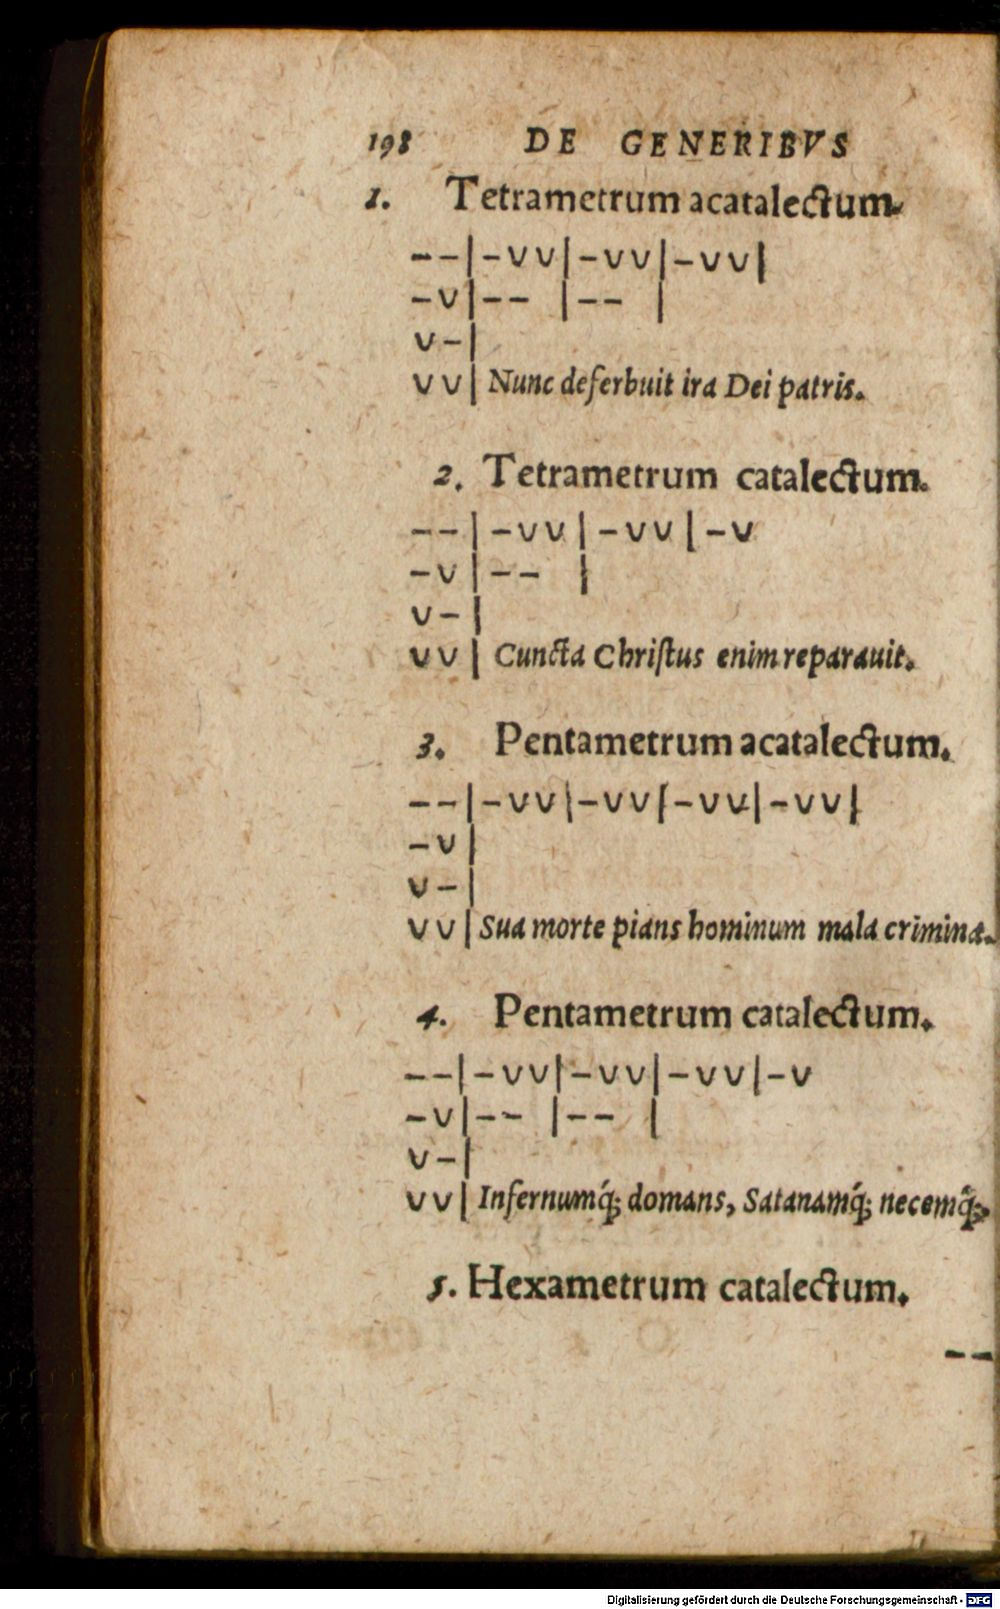 198 DE GENERIBVS
1. Tetrametrum acatalectum.
--|-vv|-vv|-vv|
-v|-- |-- |
v-|
vv| Nunc deferbuit ira Dei patris.
2. Tetrametrum catalectum.
--|-vv|-vv|-v
-v|-- |
v-|
vv| Cuncta Chriſtus enim reparauit.
3. Pentametrum acatalectum.
--|-vv|-vv|-vv|-vv|
-v|
v-|
vv| Sua morte pians hominum mala crimina.
4. Pentametrum catalectum.
--|-vv|-vv|-vv|-v
-v|-- |-- |
v-|
vv| Infernumq́; domans, Satanamq́; necemq́;
5. Hexametrum catalectum.
--
Digitalisierung gefördert durch die Deutsche Forschungsgemeinschaft - DFG